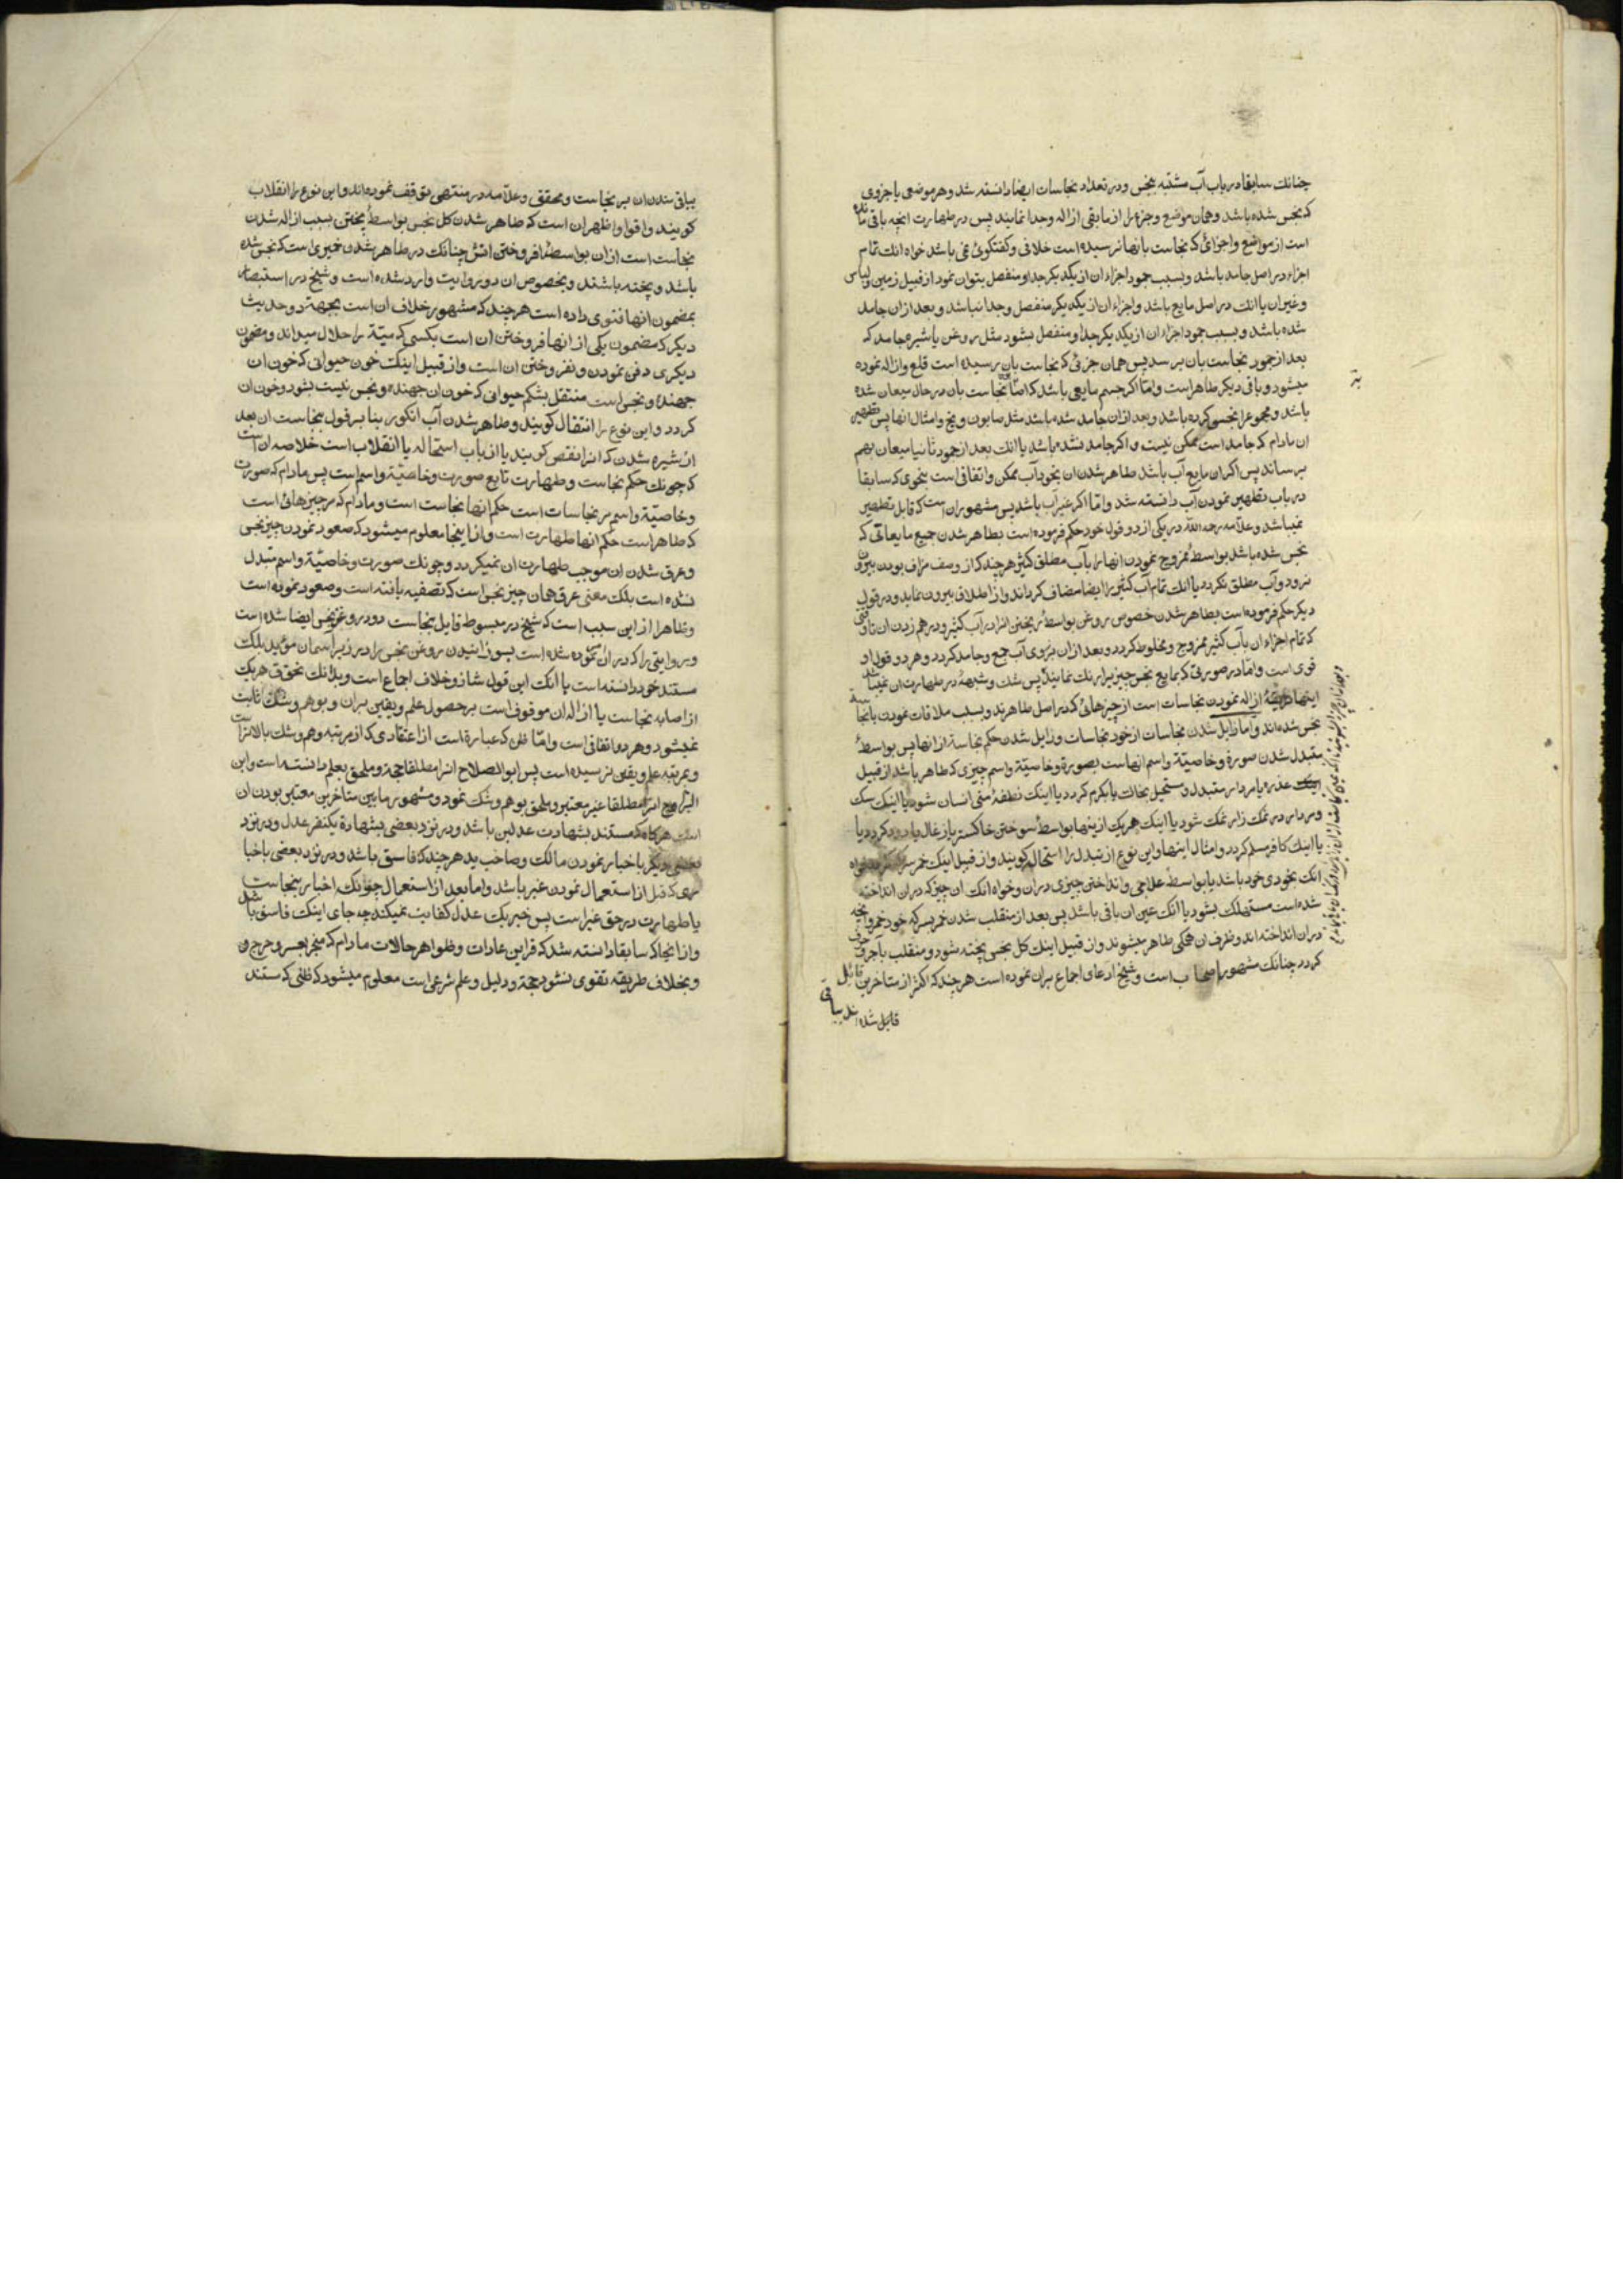 چنانك سابقا در باب آب مشتبه بنجس و در تعداد نجاسات ایضا دانسته شد و هر موضعی یا جزوی
که نجس شده باشد و همان موضع و جزء را از مابقی ازاله و جدا نمایند پس در طهارت انچه باقی مانده
است از مواضع و اجزائی که نجاست بانها نرسیده است خلافی و کفتکوئی نمی باشد خواه انك تمام
اجزاء در اصل جامد باشد و بسبب جمود اجزاء ان از یکدیکر جدا و منفصل بتوان نمود از قبیل زمین و لباس
و غیر ان یا انك در اصل مایع باشد و اجزاء ان از یکدیکر منفصل و جدا نباشد و بعد از ان جامد
شده باشد و بسبب جمود اجزاء ان از یکدیکر جدا و منفصل بشود مثل روغن یا شیره جامد که
بعد از جمود نجاست بان برسد پس همان جزئی که نجاست بان رسیده است قلع و ازاله نموده
میشود و باقی دیکر طاهر است و امّا اکر جسم مایعی باشد که نجاست بان در حال میعان شده
باشد و مجموع را نجس کرده باشد و بعد از ان جامد شده باشد مثل صابون و یخ و امثال انها پس تطهیر
ان مادام که جامد است ممکن نیست و اکر جامد نشده باشد یا انك بعد از جمود ثانیا میعان بهم
برساند پس اکر ان مایع آب باشد طاهر شدن ان بخود آب ممکن و اتفاقی است بنحوی که سابقا
در باب تطهیر نمودن آب دانسته شد و امّا اکر غیر آب باشد پس مشهور ان است که قابل تطهیر
نمیباشد و علّامه رحمه اللّه در یکی از دو قول خود حکم فرموده است بطاهر شدن جمیع مایعاتی که
نجس شده باشد بواسطهٔ ممزوج نمودن انها را بآب مطلق کثیر هر چند که از وصف مزاف بودن بیرون
نرود و آب مطلق نکردد یا انك تمام آب کثیر را ایضا مضاف کرداند و از اطلاق بیرون نماید و در قول
دیکر حکم فرموده است بطاهر شدن خصوص روغن بواسطهٔ ریختن انرا در آب کثیر و در هم زدن ان تا وقتی
که تمام اجزاء ان بآب کثیر ممزوج و مخلوط کردد و بعد از ان بر روی آب جمع و جامد کردد و هر دو قول او
قوی است و امّا در صورتی که بمایع نجس چیزیرا رنك نمایند پس شك و شبههٔ در طهارت ان نمیباشد
اینها در ازاله نمودن نجاسات است از چیزهائی که در اصل طاهرند و بسبب ملاقات نمودن بانجاسة
نجس شده اند و اما زایل شدن نجاسات از خود نجاسات و زایل شدن حکم نجاسة از انها پس بواسطهٔ
متبدل شدن صورة و خاصیّة و اسم انهاست بصورة و خاصیّة و اسم چیزی که طاهر باشد از قبیل
اینك عذره یا مردار متبدل و مستحیل بخاك یا بکرم کردد یا اینك نطفهٔ منی انسان شود یا اینك سك
و مردار در نمك زار نمك شود یا اینك هر یك از ینها بواسطهٔ سوختن خاکستر یا زغال یا دود کردد یا
یا اینك کافر مسلم کردد و امثال اینها و این نوع از تبدل را استحاله کویند و از قبیل اینك خمر سرکه کردد خواه
انك بخودی خود باشد یا بواسطهٔ علاجی و انداختن چیزی در ان و خواه انك ان چیز که در ان انداخته
شده است مستهلك بشود یا انك عین ان باقی باشد پس بعد از منقلب شدن خمر بسرکه خود خمر و انچه
در ان انداخته اند و ظرف ان همکی طاهر میشوند و از قبیل اینك کل نجس پخته شود و منقلب بآجر و خزف
کردد چنانك مشهور اصحاب است و شیخ ادعای اجماع بران نموده است هر چند که اکثر از متاخرین قائل
قائل شده اند بباقی
بباقی بودن ان بر نجاست و محقق و علّامه در منتهی توقف نموده اند و این نوع را انقلاب
کویند و اقوا و اظهر ان است که طاهر شدن کل نجس بواسطهٔ پختن بسبب ازاله شدن
نجاست است از ان بواسطهٔ افروختن اتش چنانك در طاهر شدن خمیری است که نجس شده
باشد و پخته باشند و بخصوص ان دو روایت وارد شده است و شیخ در استبصار
بمضمون انها فتوی داده است هر چند که مشهور خلاف ان است بجهة دو حدیث
دیکر که مضمون یکی از انها فروختن ان است بکسی که میّة را حلال میداند و مضمون
دیکری دفن نمودن و نفروختن ان است و از قبیل اینك خون حیوانی که خون ان
جهنده و نجس است منتقل بشکم حیوانی که خون ان جهنده و نجس نیست بشود و خون ان
کردد و این نوع را انتقال کویند و طاهر شدن آب انکور بنا بر قول بنجاست ان بعد
از شیره شدن که انرا نقص کویند یا از باب استحاله یا انقلاب است خلاصه ان است
که چونك حکم نجاست و طهارت تابع صورت و خاصیّة و اسم است پس مادام که صورت
و خاصیّة و اسم بر نجاسات است حکم انها نجاست است و مادام که بر چیزهائی است
که طاهر است حکم انها طهارت است و از اینجا معلوم میشود که صعود نمودن چیز نجس
و عرق شدن ان موجب طهارت ان نمیکردد و چونك صورت و خاصیّة و اسم متبدل
نشده است بلکه معنی عرق همان چیز نجس است که تصفیه یافته است و صعود نموده است
و ظاهرا از این سبب است که شیخ در مبسوط قایل بنجاست دود روغن نجس ایضا شده است
و روایتی را که در ان نموده شده است بسوزانیدن روغن نجس را در زیر آسمان مؤید بلکه
مستند خود دانسته است یا انك این قول شاذ و خلاف اجماع است و بدانك تحقق هر یك
از اصابه نجاست یا ازاله ان موقوف است بر حصول علم و یقین بران و بوهم و شك ثابت
نمیشود و هر دو اتفاقی است و امّا ظن که عبارة است از اعتقادی که از مرتبه وهم و شك بالاتر است
و بمرتبه علم و یقین نرسیده است پس ابو الصلاح انرا مطلقا حجة و ملحق بعلم دانسته است و ابن
البراج انرا مطلقا غیر معتبر و ملحق بوهم و شك نمود و مشهور مابین متاخرین معتبر بودن ان
است هر کاه که مستند بشهادت عدلین باشد و در نزد بعضی بشهادة یکنفر عدل و در نزد
بعضی دیکر باخبار نمودن مالك و صاحب ید هر چند که فاسق باشد و در نزد بعضی باخبار
قبل از استعمال نمودن غیر باشد و اما بعد از استعمال چونك اخبار بنجاست
یا طهارت در حق غیر است پس خبر یك عدل کفایت نمیکند چه جای اینك فاسق باشد
و از انجا که سابقا دانسته شد که قراین عادات و ظواهر حالات مادام که منجر بعسر و حرج و
و بخلاف طریقه تقوی نشود حجة و دلیل و علم شرعی است معلوم میشود که ظنی که مستند